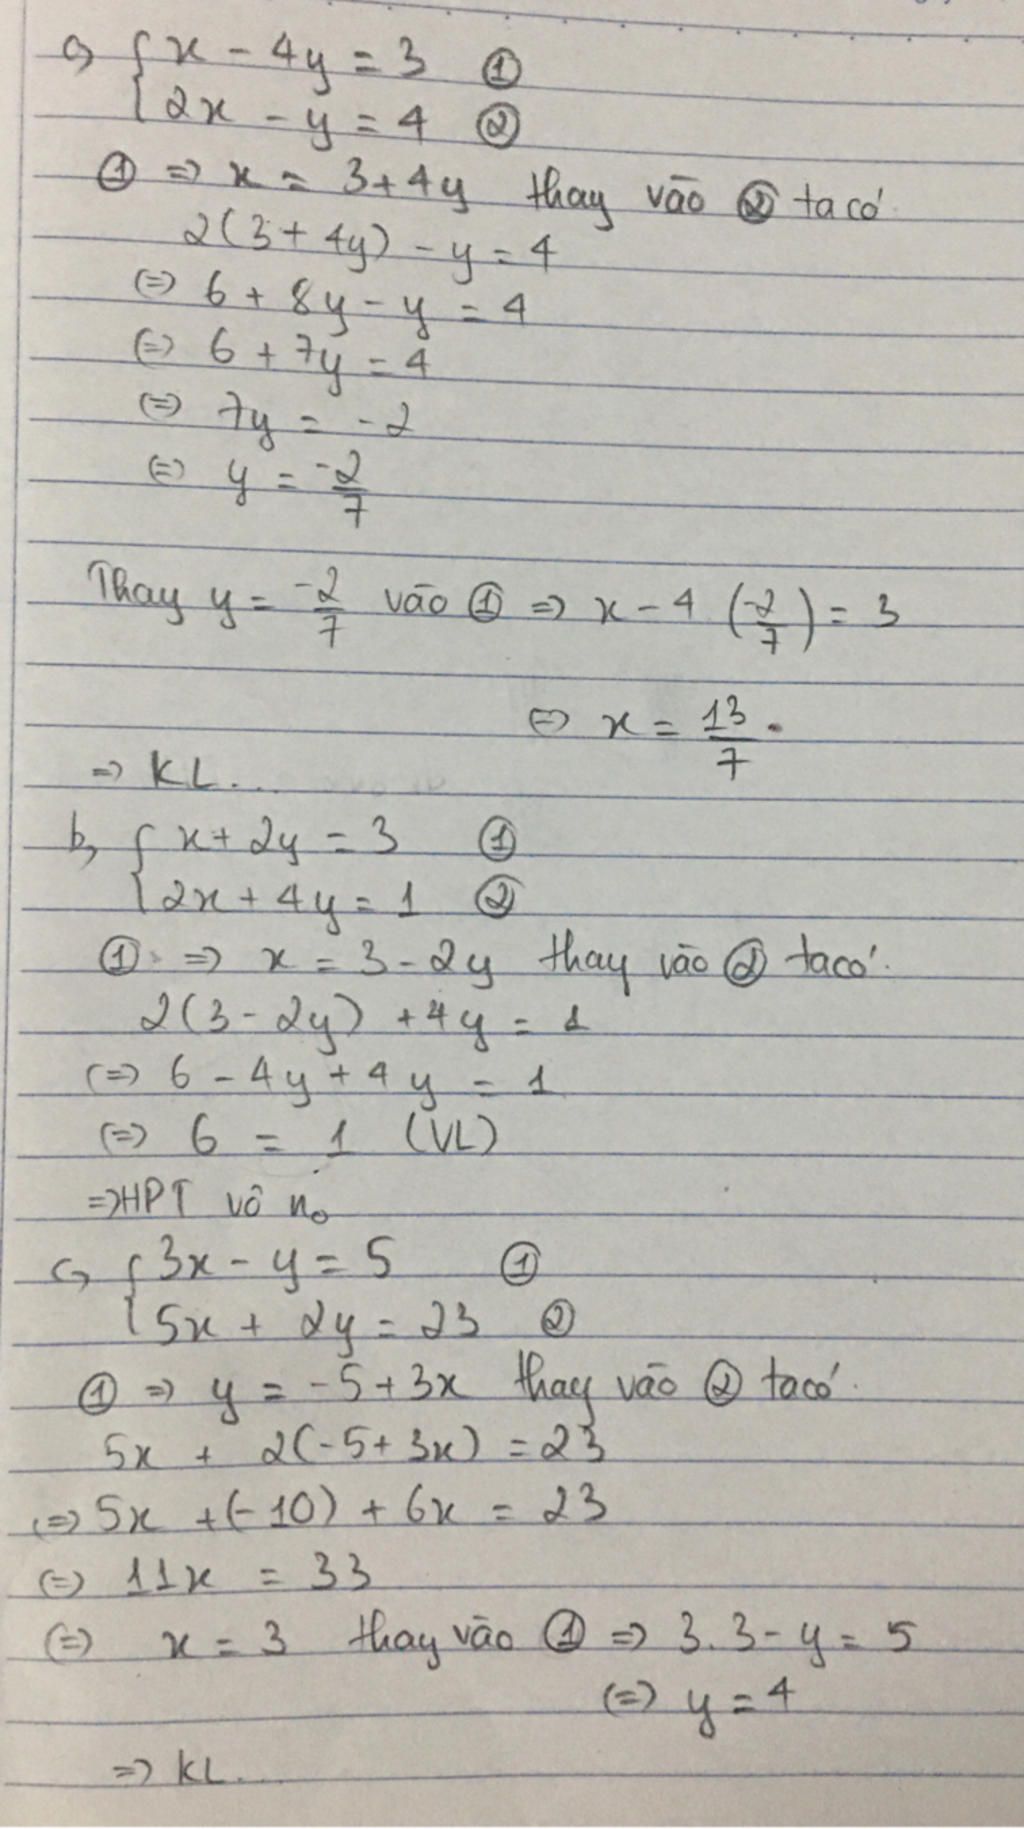 a, { x - 4y = 3 ①
2x - y = 4 ②
① => x = 3+4y thay vào ② ta có.
2(3 + 4y) - y = 4
(=) 6 + 8y - y = 4
(=) 6 + 7y = 4
(=) 7y = -2
(=) y = -2/7
Thay y = -2/7 vào ① => x - 4 (-2/7) = 3
(=) x = 13/7.
=> KL...
b, { x + 2y = 3 ①
2x + 4y = 1 ②
① => x = 3 - 2y thay vào ② ta có.
2(3 - 2y) + 4y = 1
(=) 6 - 4y + 4y = 1
(=) 6 = 1 (VL)
=> HPT vô no
c, { 3x - y = 5 ①
5x + 2y = 23 ②
① => y = -5 + 3x thay vào ② ta có.
5x + 2(-5 + 3x) = 23
(=) 5x + (-10) + 6x = 23
(=) 11x = 33
(=) x = 3 thay vào ① => 3.3 - y = 5
(=) y = 4
=> KL...